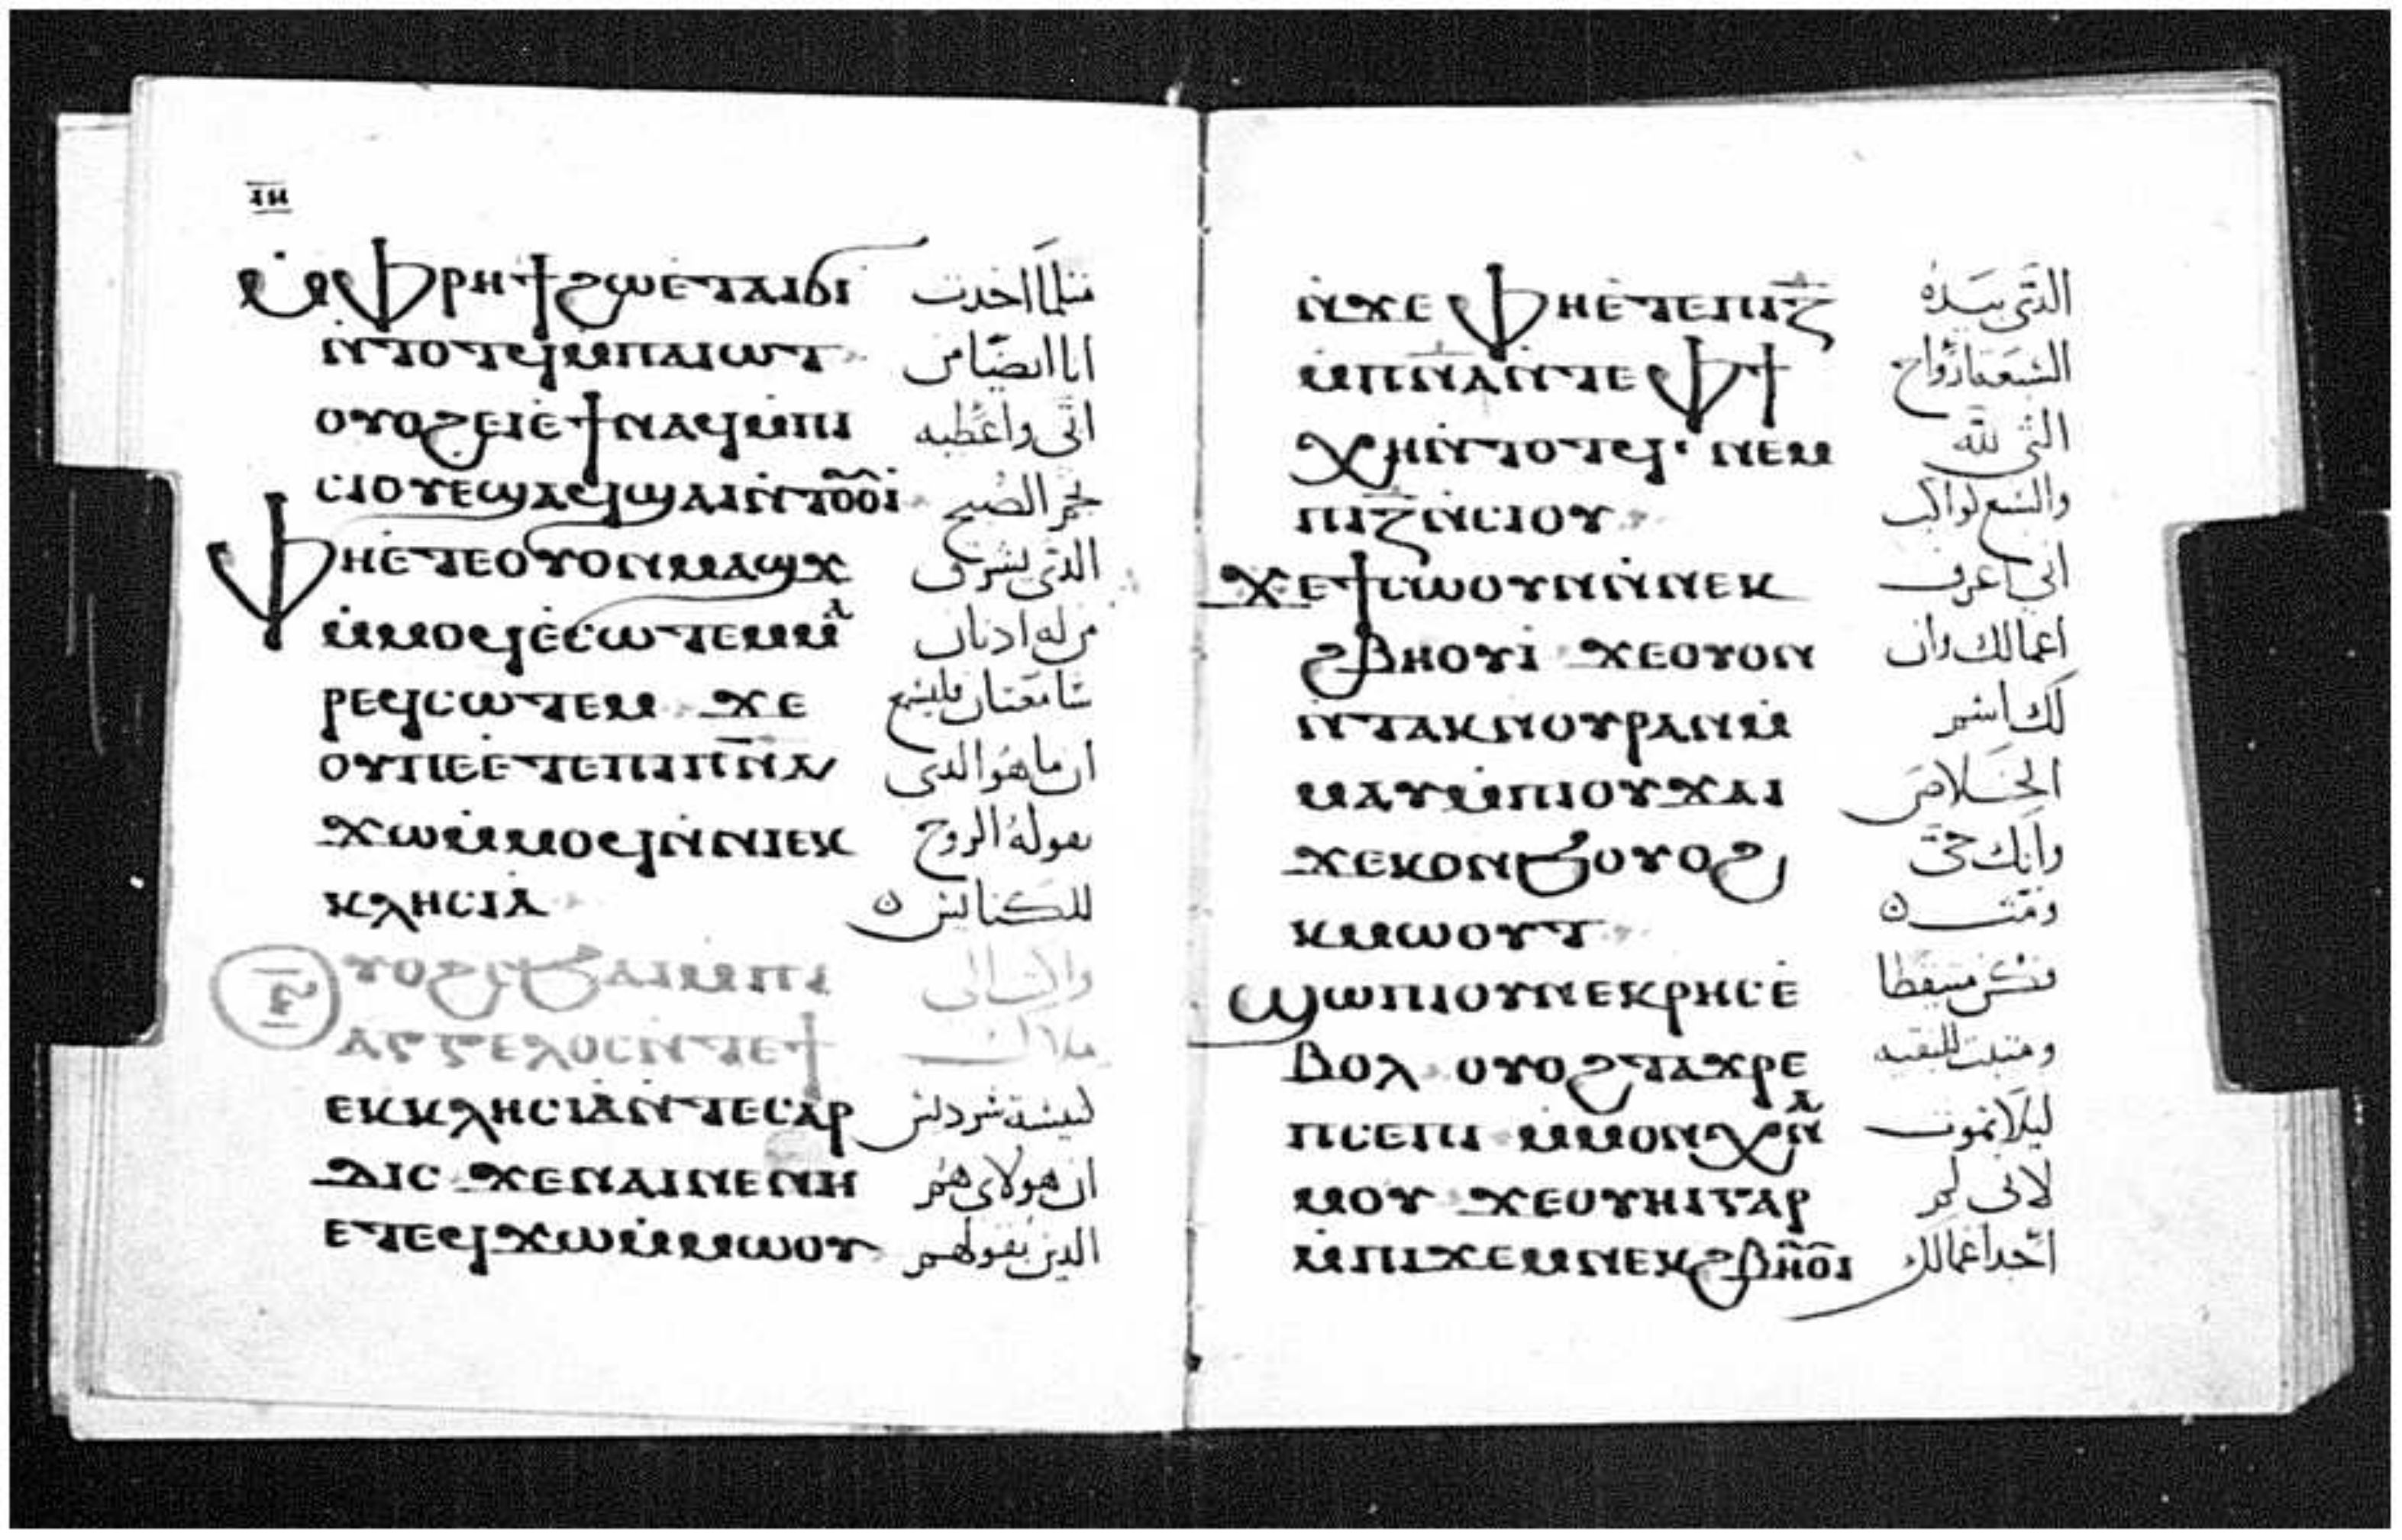 ⲓⲏ
ⲙ̀ⲫⲣⲏϯϩⲱⲉ̀ⲧⲁⲓϭⲓ مثلما اخدت
ⲛ̀ⲧⲟⲧϥⲙ̀ⲡⲁⲓⲱⲧ انا ايضا من
ⲟⲩⲟϩⲉⲓⲉ̀ϯⲛⲁϥⲙ̀ⲡⲓ اتى واعطيه
ⲥⲓⲟⲩⲉϣⲁϥϣⲁⲓⲛ̀ⲧⲟ̃ⲟ̃ⲓ نجم الصبح
ⲫⲏⲉ̀ⲧⲉⲟⲩⲟⲛⲙⲁϣϫ الدى يشرق
ⲙ̀ⲙⲟϥⲉ̀ⲥⲱⲧⲉⲙⲙⲁ من له ادنان
ⲣⲉϥⲥⲱⲧⲉⲙ ϫⲉ سامعتان فليسمع
ⲟⲩⲡⲉⲉ̀ⲧⲉⲡⲓⲡ̅ⲛ̅ⲁ̅ ان ما هو الدى
ϫⲱⲙ̀ⲙⲟϥⲛ̀ⲛⲓⲉⲕ يقوله الروح
ⲕⲗⲏⲥⲓⲁ للكنايس ه
ⲅ̅ ⲟⲩⲟϩⲥϧⲁⲓⲙ̀ⲡⲓ واكتب الى
ⲁⲅⲅⲉⲗⲟⲥⲛ̀ⲧⲉϯ ملاك
ⲉⲕⲕⲗⲏⲥⲓⲁⲛ̀ⲧⲉⲥⲁⲣ كنيسة سردس
ⲇⲓⲥ ϫⲉⲛⲁⲓⲛⲉⲛⲏ ان هولاى هم
ⲉⲧⲉϥϫⲱⲙ̀ⲙⲱⲟⲩ الدين يقولهم
ⲛ̀ϫⲉⲫⲏⲉ̀ⲧⲉⲡⲓⲍ̅ الدى بيده
ⲙ̀ⲡ̅ⲛ̅ⲁ̅ⲛ̀ⲧⲉⲫϯ السبعة ارواح
ⲭⲏⲛ̀ⲧⲟⲧϥ· ⲛⲉⲙ التى لله
ⲡⲓⲍ̅ⲛ̀ⲥⲓⲟⲩ والسبع كواكب
ϫⲉϯⲥⲱⲟⲩⲛⲛ̀ⲛⲉⲕ انى اعرف
ϩⲃⲏⲟⲩⲓ ϫⲉⲟⲩⲟⲛ اعمالك وان
ⲛ̀ⲧⲁⲕⲛ̀ⲟⲩⲣⲁⲛⲙ̀ لك اسم
ⲙⲁⲩⲙ̀ⲡⲓⲟⲩϫⲁⲓ الخلاص
ϫⲉⲕⲟⲛϧⲟⲩⲟϩ وانك حى
ⲕⲙⲱⲟⲩⲧ وميت ه
ϣⲱⲡⲓⲟⲩⲛⲉⲕⲣⲏⲥⲉ̀ فكن مستيقظا
ⲃⲟⲗ ⲟⲩⲟϩⲧⲁϫⲣⲉ ومثبت للبقيه
ⲡⲥⲉⲡⲓ ⲙ̀ⲙⲟⲛⲭⲛⲁ ليلا تموت
ⲙⲟⲩ ϫⲉⲟⲩⲏⲓⲅⲁⲣ لانى لم
ⲙ̀ⲡⲓϫⲉⲙⲛⲉⲕϩⲃⲏ̃ⲟ̃ⲓ اجد اعمالك